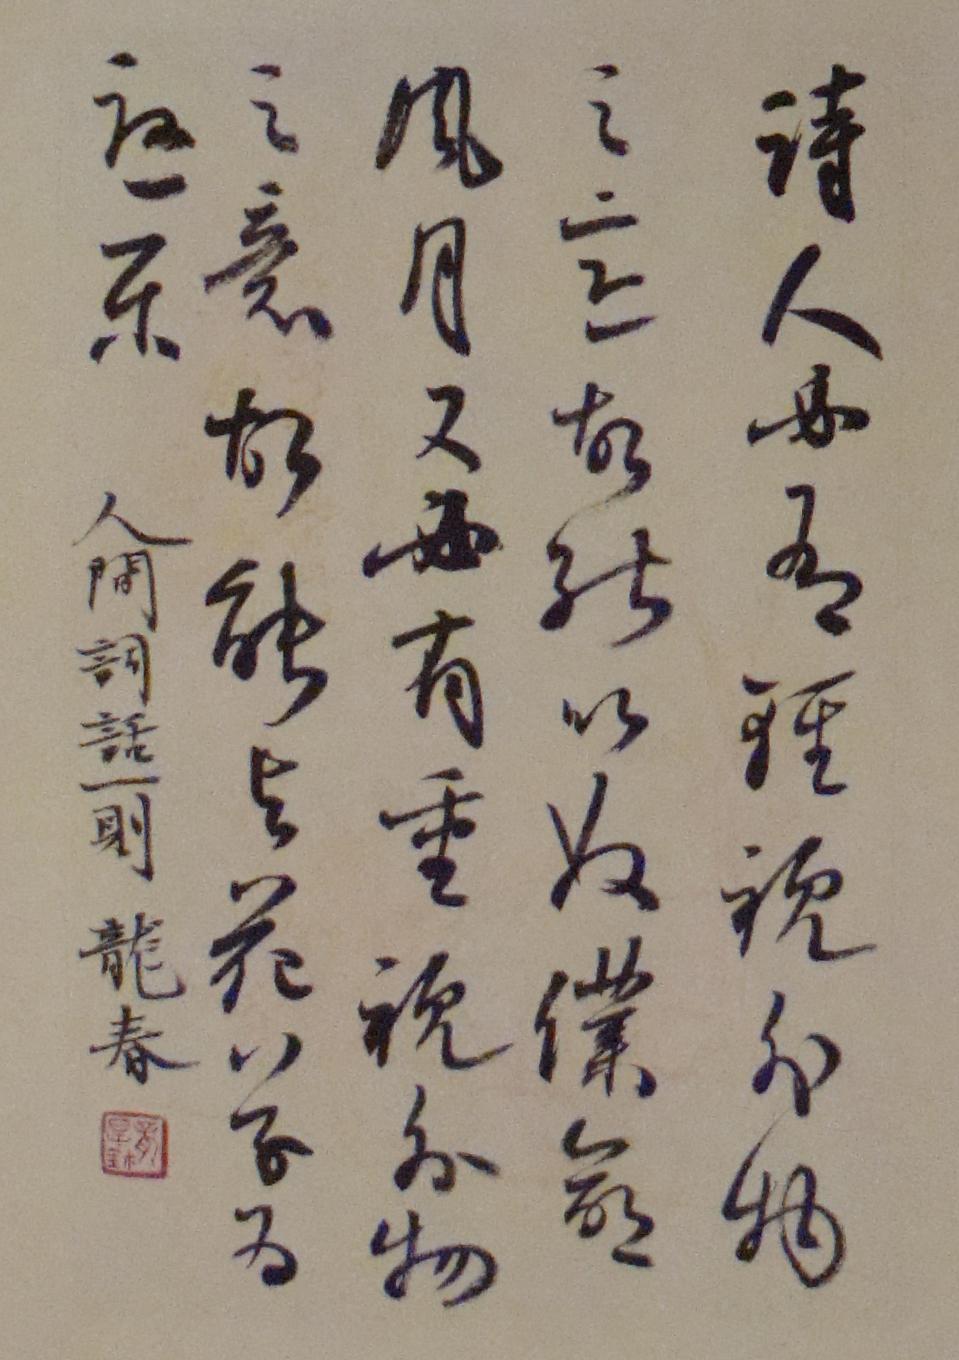 詩人必有輕視外物
之意故能以奴僕命
風月又必有重視外物
之意故能與花草為
憂樂
人間詞話一則 龍春